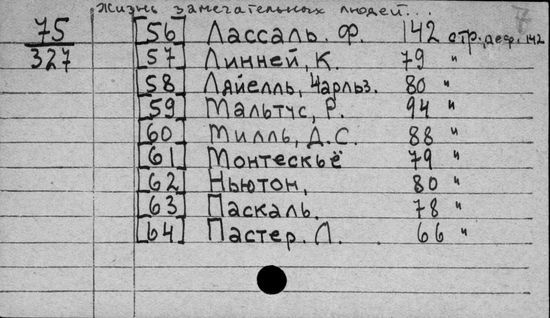 Жизнь замечательных людей...
7
75 [56] Лассаль. Ф. 142 стр. деф. 142
327 [57] Линней, К. 79 "
[58] Ляйелль, Чарльз. 80 "
[59] Мальтус, Р. 94 "
[60] Милль, Д. С. 88 "
[61] Монтескьё 79 "
[62] Ньютон, 80 "
[63] Паскаль. 78 "
[64] Пастер. Л. 66 "